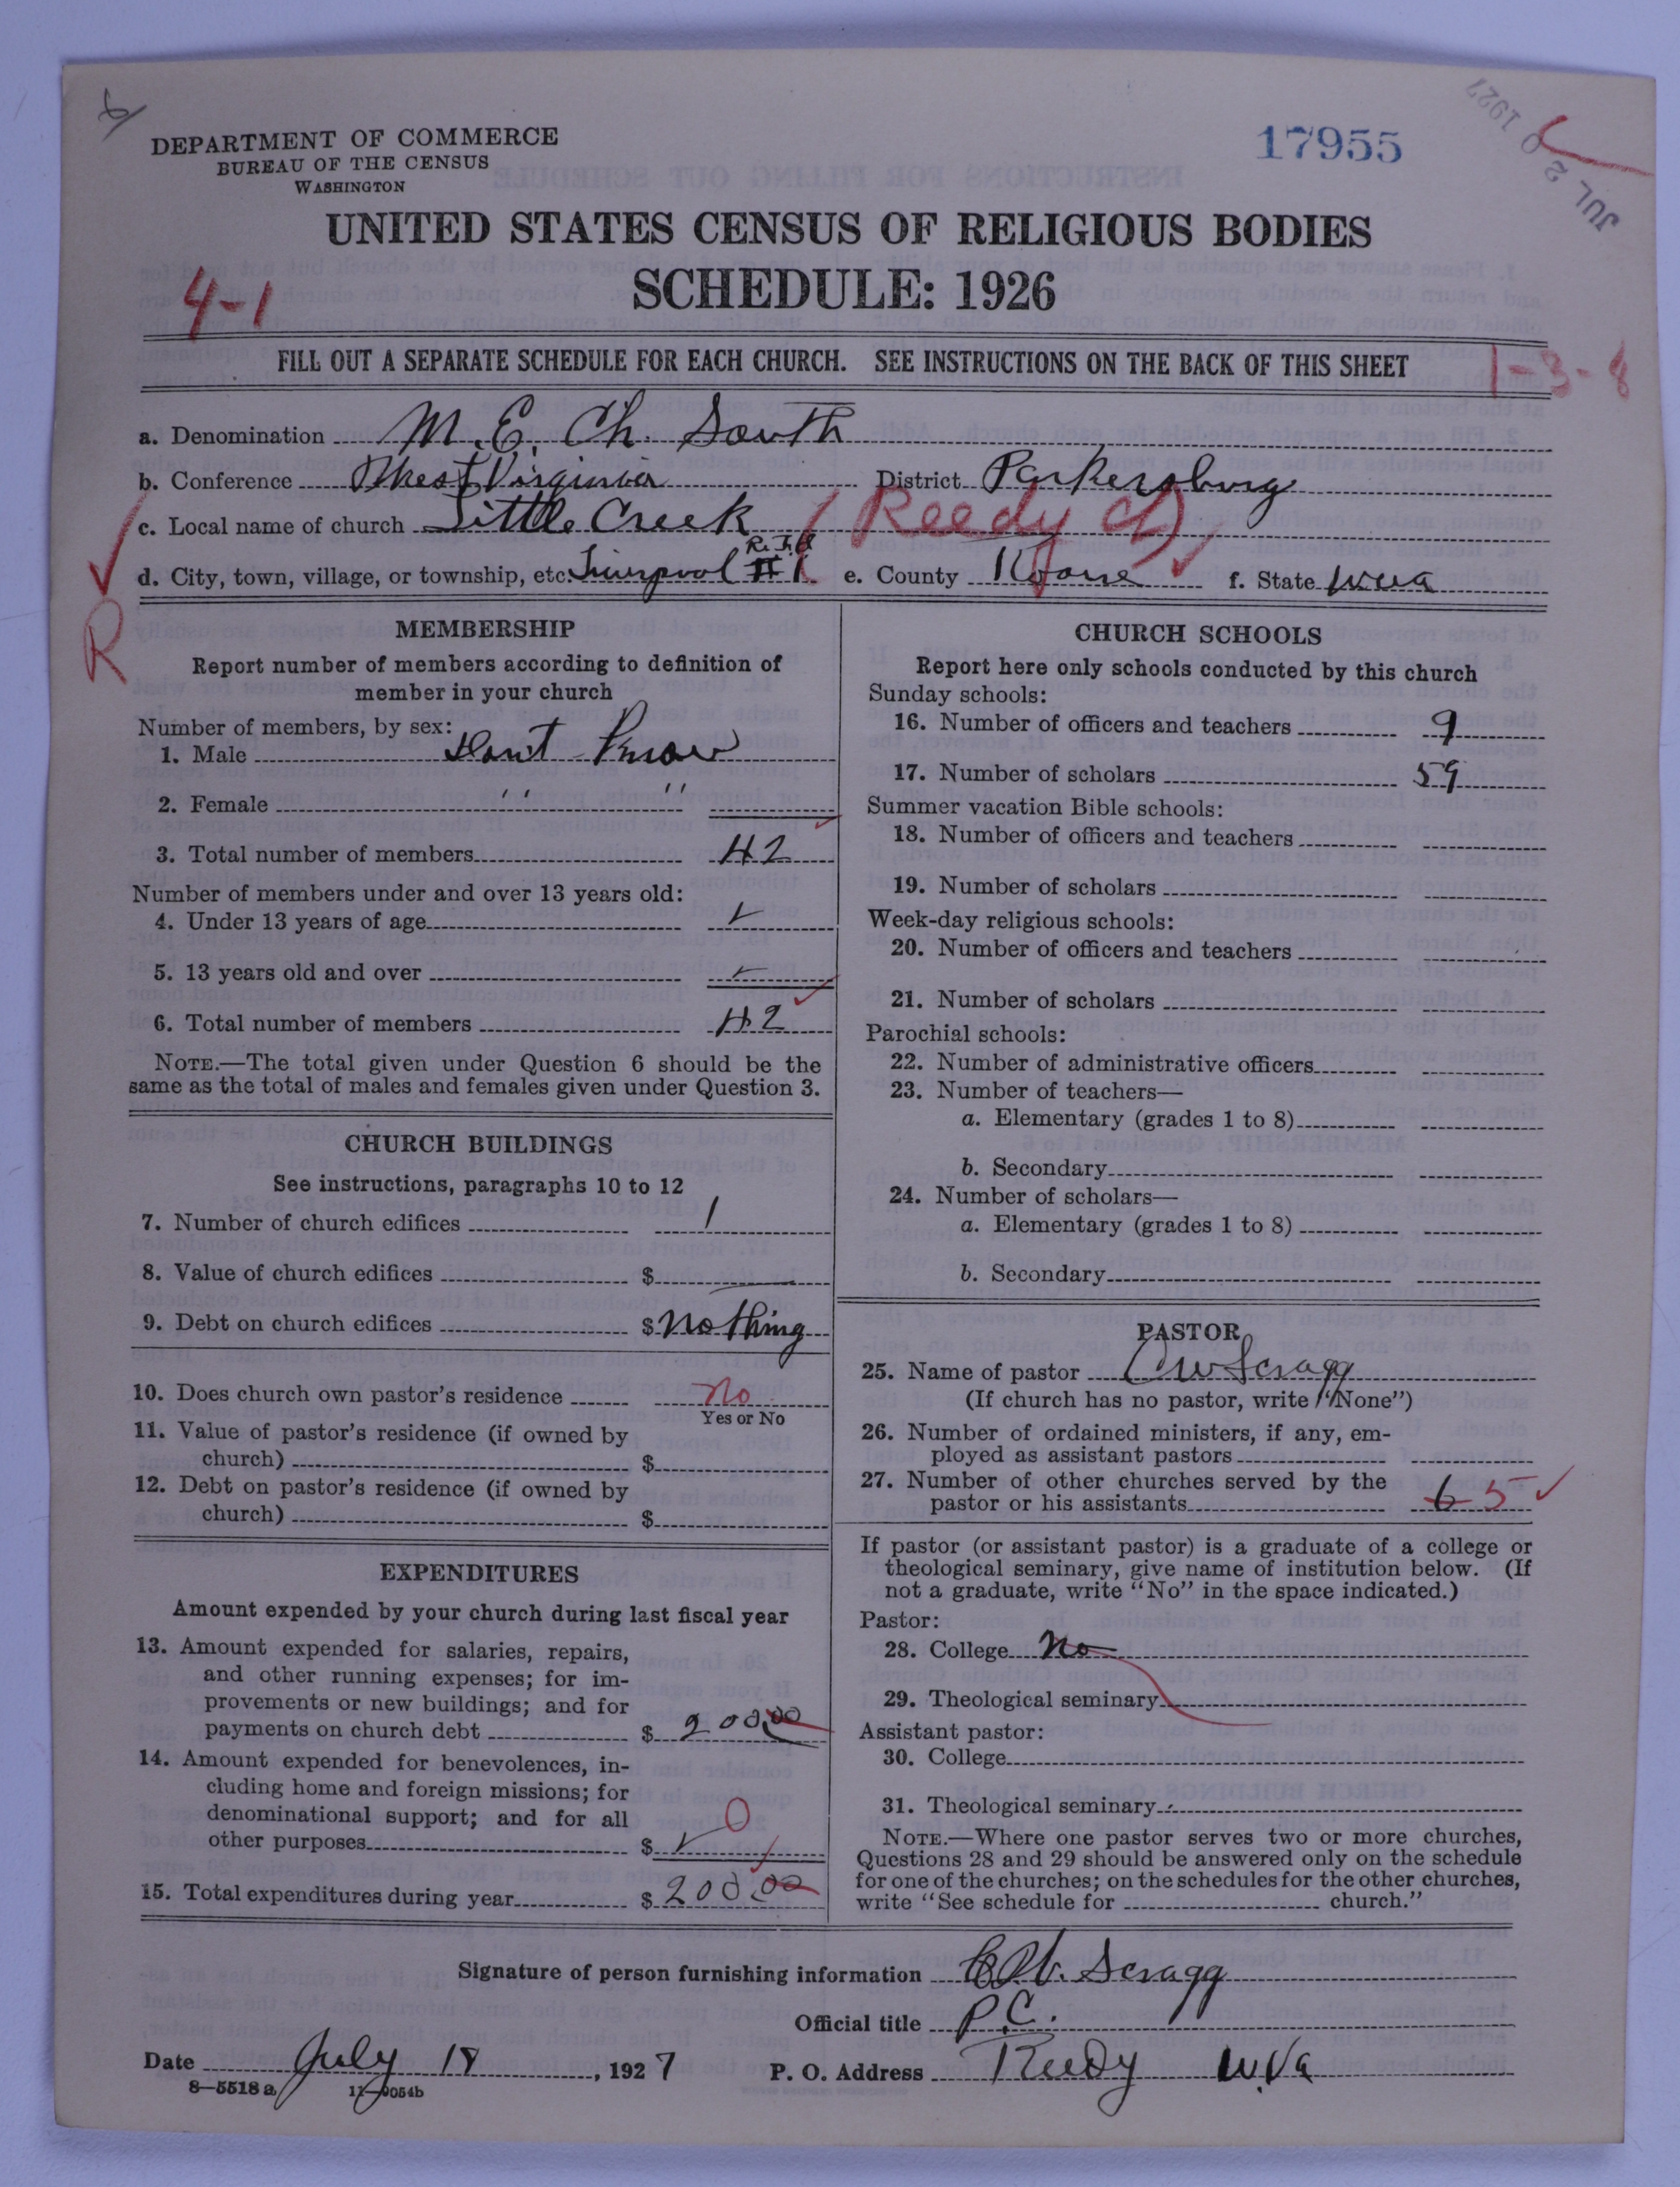 DEPARTMENT OF COMMERCE
BUREAU OF THE CENSUS
WASHINGTON
17955
JUL 20 1927
UNITED STATES CENSUS OF RELIGIOUS BODIES
SCHEDULE: 1926
4-1
FILL OUT A SEPARATE SCHEDULE FOR EACH CHURCH. SEE INSTRUCTIONS ON THE BACK OF THIS SHEET
1-3-8
a. Denomination M.E. Ch. South
b. Conference West Virginia District Parkersburg
c. Local name of church Little Creek Reedy
d. City, town, village, or township, etc. Liverpool # 1 e. County Roane f. State W Va
R
MEMBERSHIP
Report number of members according to definition of
member in your church
Number of members, by sex:
1. Male Dont Know
2. Female " "
3. Total number of members 42
Number of members under and over 13 years old:
4. Under 13 years of age
5. 13 years old and over
6. Total number of members 42
NOTE.—The total given under Question 6 should be the
same as the total of males and females given under Question 3.
CHURCH BUILDINGS
See instructions, paragraphs 10 to 12
7. Number of church edifices 1
8. Value of church edifices $
9. Debt on church edifices $ nothing
10. Does church own pastor's residence no
Yes or No
11. Value of pastor's residence (if owned by
church) $
12. Debt on pastor's residence (if owned by
church) $
EXPENDITURES
Amount expended by your church during last fiscal year
13. Amount expended for salaries, repairs,
and other running expenses; for im-
provements or new buildings; and for
payments on church debt $ 200.00
14. Amount expended for benevolences, in-
cluding home and foreign missions; for
denominational support; and for all
other purposes $ 0
15. Total expenditures during year $ 200.00
CHURCH SCHOOLS
Report here only schools conducted by this church
Sunday schools:
16. Number of officers and teachers 9
17. Number of scholars 59
Summer vacation Bible schools:
18. Number of officers and teachers
19. Number of scholars
Week-day religious schools:
20. Number of officers and teachers
21. Number of scholars
Parochial schools:
22. Number of administrative officers
23. Number of teachers—
a. Elementary (grades 1 to 8)
b. Secondary
24. Number of scholars—
a. Elementary (grades 1 to 8)
b. Secondary
PASTOR
25. Name of pastor C W Scragg
(If church has no pastor, write "None")
26. Number of ordained ministers, if any, em-
ployed as assistant pastors
27. Number of other churches served by the
pastor or his assistants 6 5
If pastor (or assistant pastor) is a graduate of a college or
theological seminary, give name of institution below. (If
not a graduate, write "No" in the space indicated.)
Pastor:
28. College No
29. Theological seminary
Assistant pastor:
30. College
31. Theological seminary
NOTE.—Where one pastor serves two or more churches,
Questions 28 and 29 should be answered only on the schedule
for one of the churches; on the schedules for the other churches,
write "See schedule for church."
Signature of person furnishing information C.W. Scragg
Official title P.C.
Date July 18, 1927 P. O. Address Reedy W.Va
8—5518 a 11—9054b